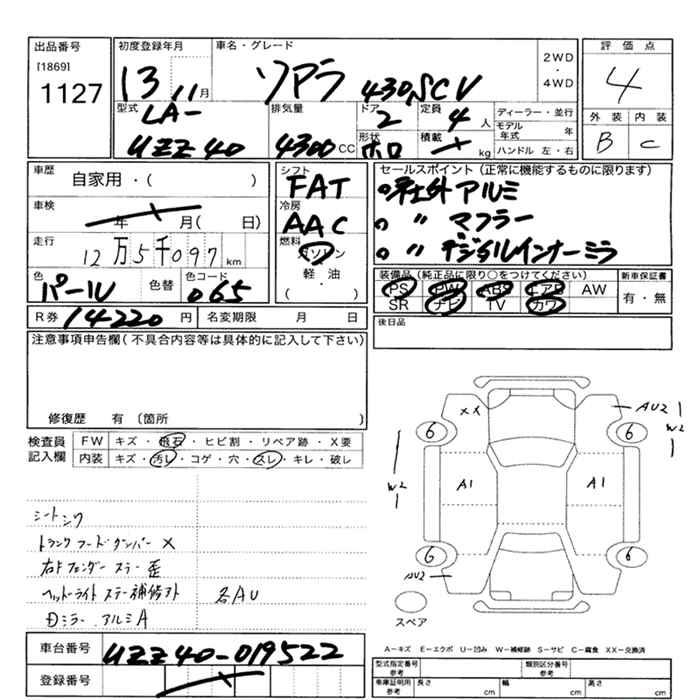 出品番号 初度登録年月 車名・グレード 2WD・4WD 評価点
[1869]
1127 13 11月 ソアラ 430SCV 4
型式 LA- 排気量 ドア 2 定員 4人 ディーラー・並行 外装 内装
UZZ40 4300CC 形状 ホロ 積載 kg モデル年式 年 B C
ハンドル 左・右
車歴 自家用・( ) シフト FAT セールスポイント(正常に機能するものに限ります)
車検 年 月( 日) 冷房 AAC 社外アルミ
〃 マフラー
走行 12万5千097km 燃料 ガソリン 軽・油 ・( ) 〃 デジタルインナーミラ
色 パール 色替 色コード 065 装備品(純正品に限り○をつけてください) 新車保証書
PS PW ABS エアB AW 有・無
SR ナビ TV カワ
R券 14220円 名変期限 月 日 後日品
注意事項申告欄(不具合内容等は具体的に記入して下さい)
修復歴 有(箇所 )
検査員記入欄 FW キズ・飛石・ヒビ割・リペア跡・X要
内装 キズ・汚レ・コゲ・穴・スレ・キレ・破レ
XX AU2 W2
6 6
W2 A1 A1
6 6
AU2
スペア
シートシワ
トランクフードダンパーX
右Fフェンダーステー歪
ヘッドライトステー補修アト 各AU
Dミラー.アルミA
車台番号 UZZ40-019522
登録番号
A－キズ E－エクボ U－凹み W－補修跡 S－サビ C－腐食 XX－交換済
型式指定番号 参考 類別区分番号 参考
車庫証明用 参考 長さ cm 幅 cm 高さ cm